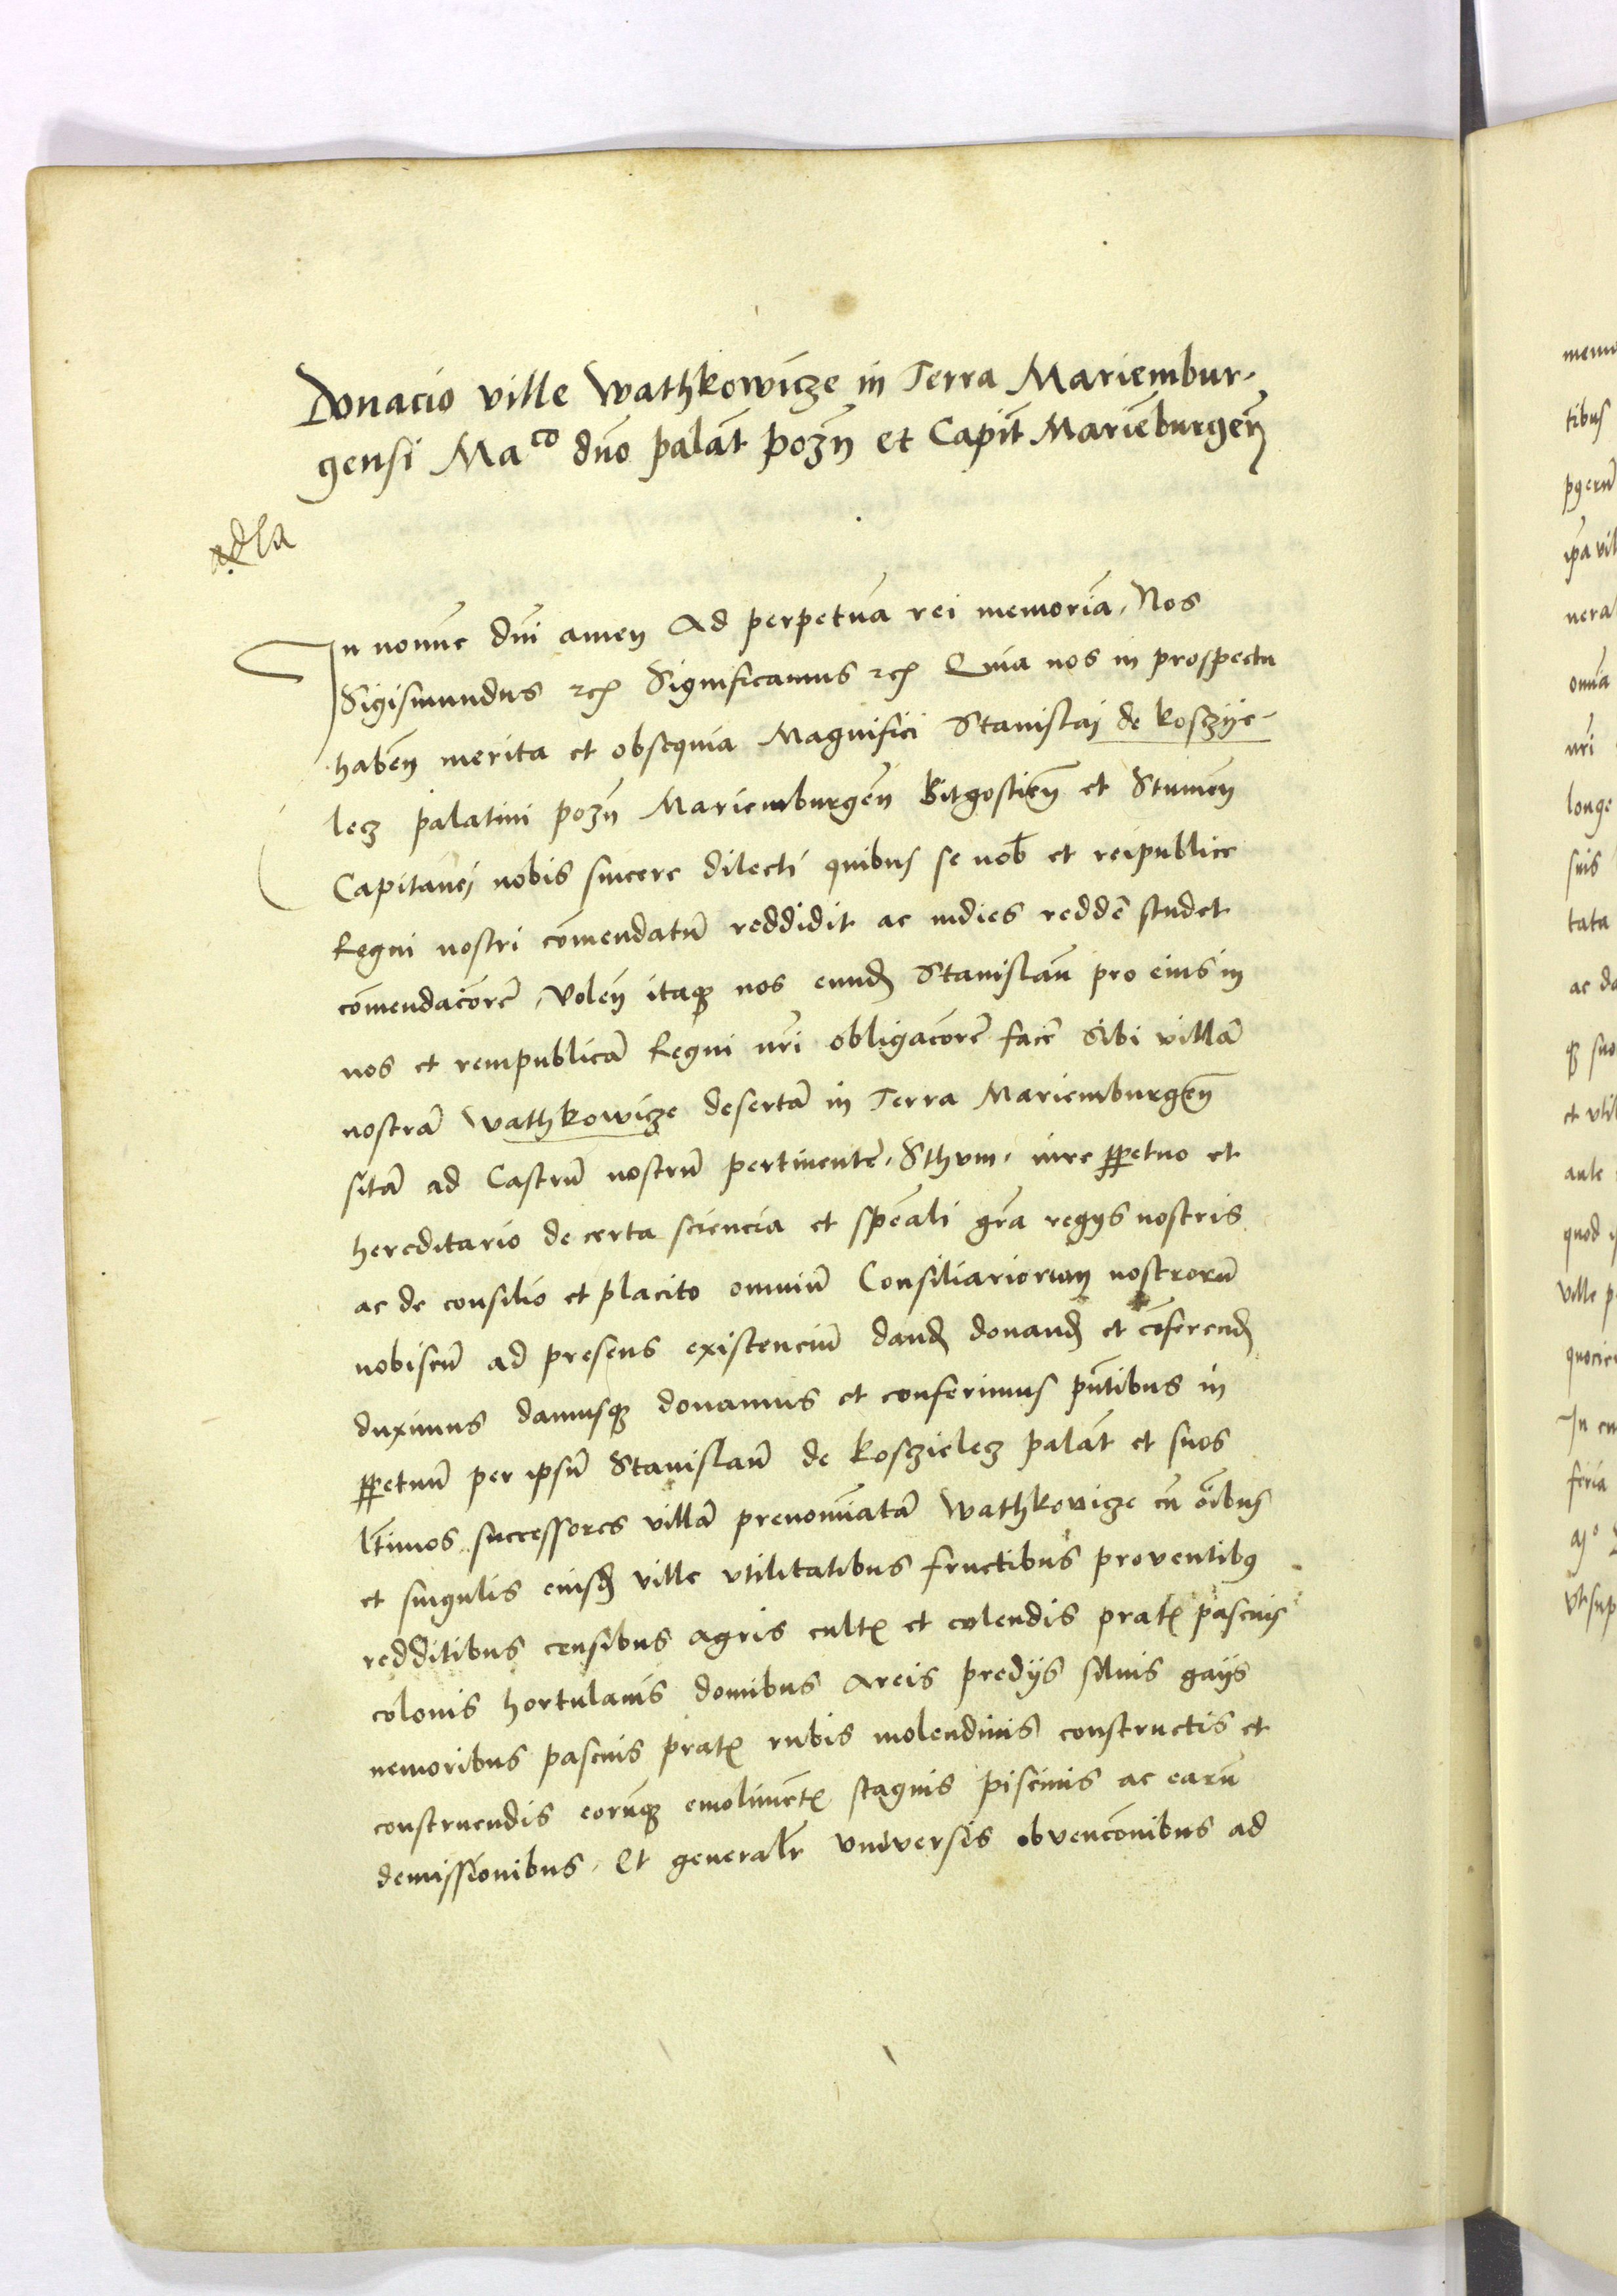 Donacio ville Wathkowicze in Terra Mariembur-
gensi Ma^co dn̄o palat̄ pozn̄ et Capit̄ Mariēburgen̄
In nomīe dn̄i amen Ad perpetuā rei memoriā. Nos
Sigismundus ꝛcꝭ Significamus ꝛcꝭ Quia nos in prospectu
haben̄ merita et obsequia Magnifici Stanislaj de koszcye-
lecz palatini pozn̄ Mariemburgen̄ Bitgostien̄ et Stumen̄
Capitanej nobis sincere dilecti quibus se nob̄ et reipublice
Regni nostri cōmendatū reddidit ac indies redder̄ studet
cōmendaciōrē. Volen̄ itaqꝫ nos eundꝭ Stanislaū pro eius in
nos et rempublicā Regni nr̄i obligaciōrē facer̄ Sibi villā
nostrā Wathkowicze desertā in Terra Mariemburgen̄
sitā ad Castrū nostrū pertinentē. Sthum. iure ꝑpetuo et
hereditario de certa sciencia et sp̄eali gr̄a regijs nostris
ac de consilio et placito omniū Consiliariorum nostrorū
nobiscū ad presens existenciū dandꝭ donandꝭ et cōferendꝭ
duximus damusqꝫ donamus et conferimus pn̄tibus in
ꝑpetuū per ipsū Stanislaū de koszcielecz palat̄ et suos
lt̄imos successores villā prenominatā Wathkowicze cū oībus
et singulis eiusdꝭ ville vtilitatibus fructibus prouentibꝯ
redditibus censibus agris cultꝭ et colendis pratꝭ pascuis
colonis hortulanis domibus areis predijs siluis gaijs
nemoribus pascuis pratꝭ rubis molendinis constructis et
construendis eorūqꝫ emolimētꝭ stagnis piscinis ac earū
demissionibus. Et generalr̄ vniuersis obuenciōnibus ad